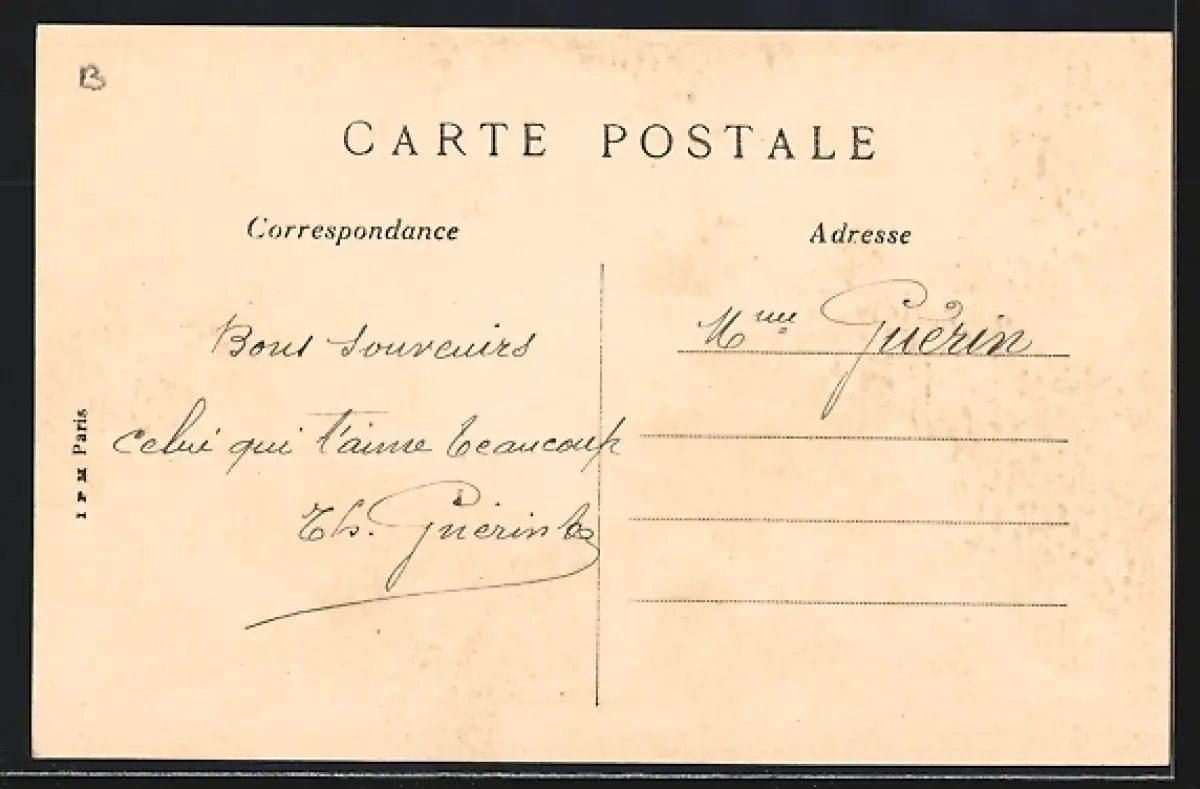 B
CARTE POSTALE
Correspondance
Adresse
Bons Souvenirs
celui qui t'aime beaucoup
Th. Guérin
Mme Guérin
I P M Paris